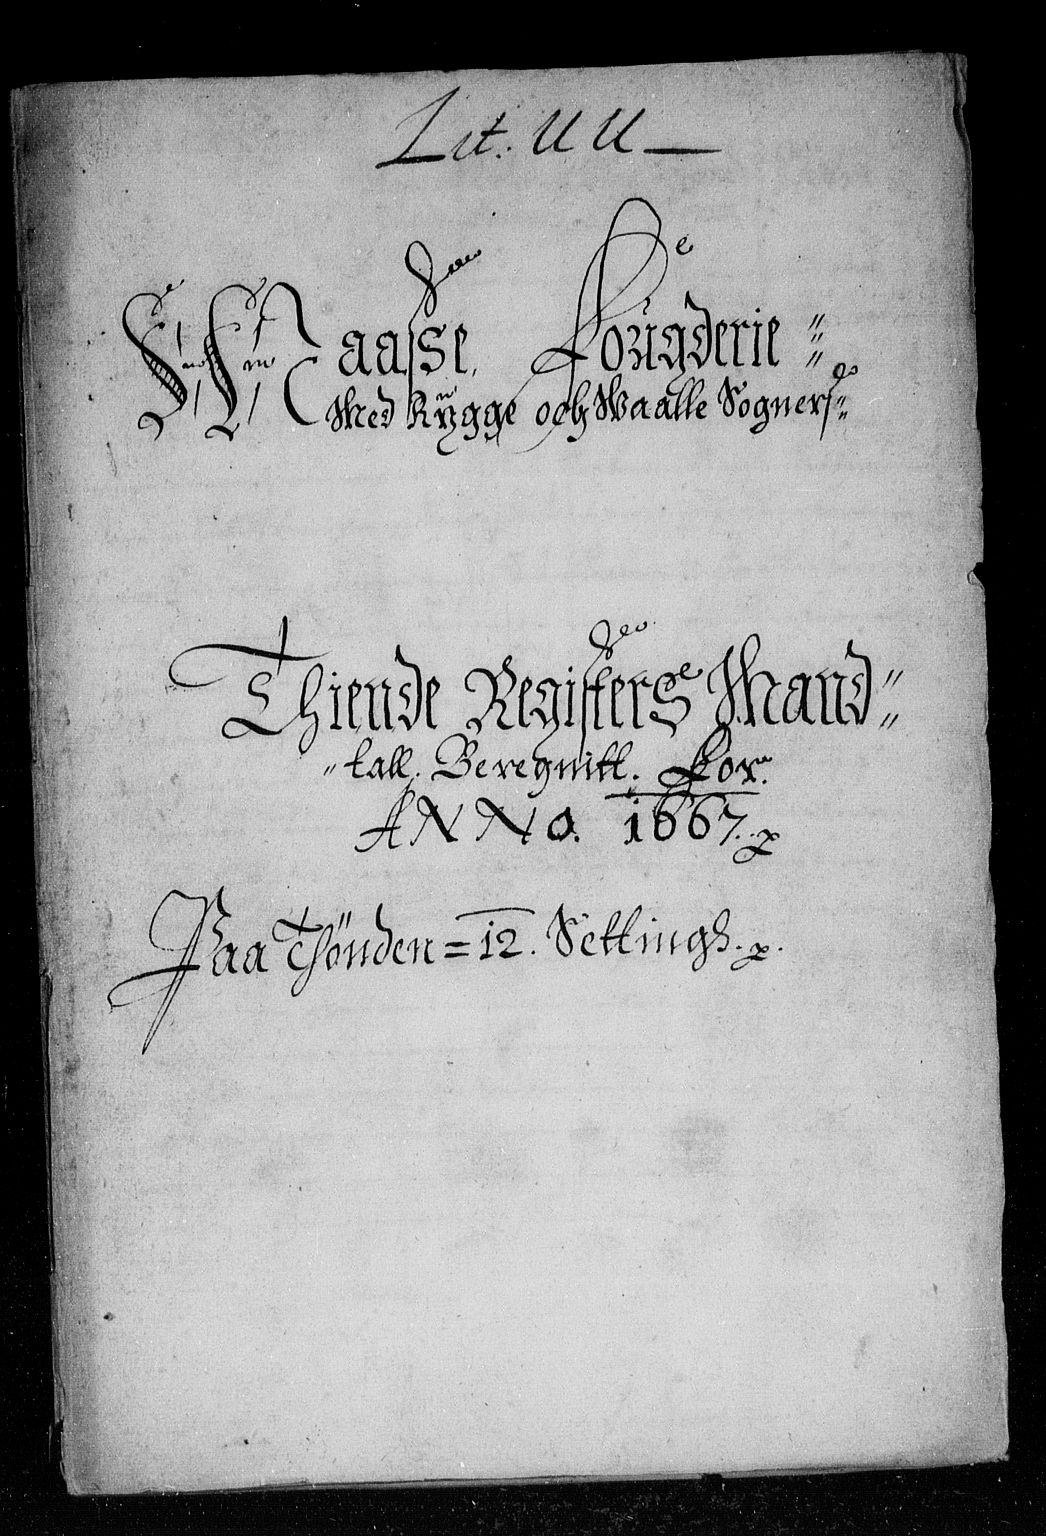 Lit. UU
Maasse, Fougderie
Med Rygge och Waalle Sogners
Thiende Registers Mand
tall. Beregnitt. For.
ANNO. 1667.
Paa Thönden = 12. Settingh.